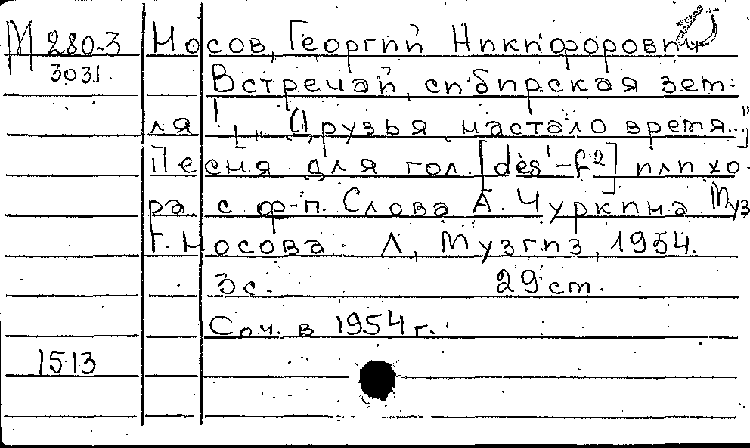 М 280-3 Носов, Георгий Никифорович
3031 Встречай, сибирская зем-
ля! [„Друзья, настало время..."]
Песня для гол. [des¹-f²] или хо-
ра с ф-п. Слова А. Чуркина Муз
Г. Носова. Л., Музгиз, 1954.
3с. 29 cm.
Соч. в 1954 г.
1513